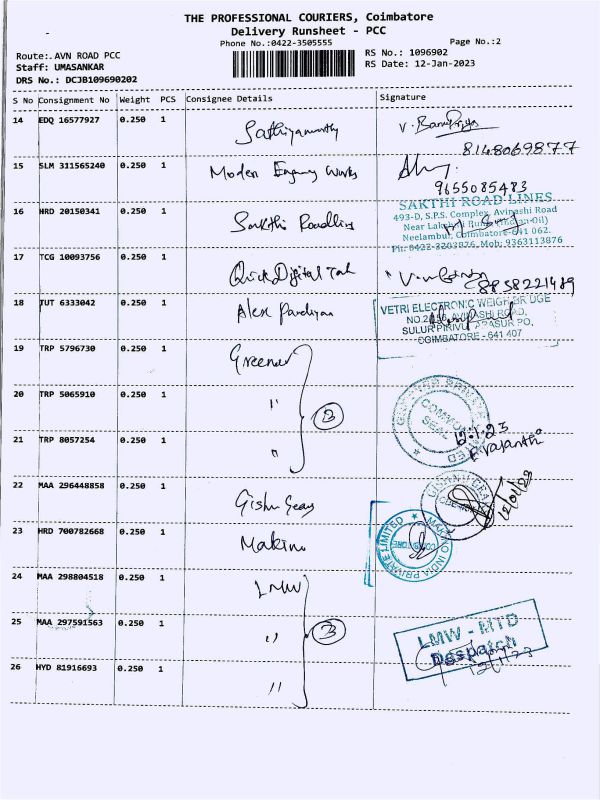 THE PROFESSIONAL COURIERS, Coimbatore
Delivery Runsheet - PCC
Phone No.:0422-3505555
Page No.:2
Route:.AVN ROAD PCC
RS No.: 1096902
Staff: UMASANKAR
RS Date: 12-Jan-2023
DRS No.: DCJB109690202
S No Consignment No Weight PCS Consignee Details Signature
14 EDQ 16577927 0.250 1 Sathiyamurthy
8148069877
15 SLM 311565240 0.250 1 Modern Works
9655085483
16 HRD 20150341 0.250 1 Sakthi Roadlines
SAKTHI ROAD LINES
493-D, S.P.S. Complex, Avinashi Road
Near Lakshmi (Indian Oil)
Neelambur, Coimbatore-641 062.
Ph: 0422-3203876, Mob: 9363113876
17 TCG 10093756 0.250 1 Quick Digital
8858221489
18 TUT 6333042 0.250 1 Alex Pandiyan
VETRI ELECTRONIC WEIGH BRIDGE
SULUR PIRIVU, ARASUR PO,
COIMBATORE - 641 407
19 TRP 5796730 0.250 1 Greener
20 TRP 5065910 0.250 1 "
3
COMMON SEAL
12.1.23
21 TRP 8057254 0.250 1 "
22 MAA 296448858 0.250 1
12/01/23
23 HRD 700782668 0.250 1 Makino
MAKINO INDIA PRIVATE LIMITED
24 MAA 298804518 0.250 1 LMW
25 MAA 297591563 0.250 1 "
3
LMW - MTD
Despatch
26 HYD 81916693 0.250 1 "